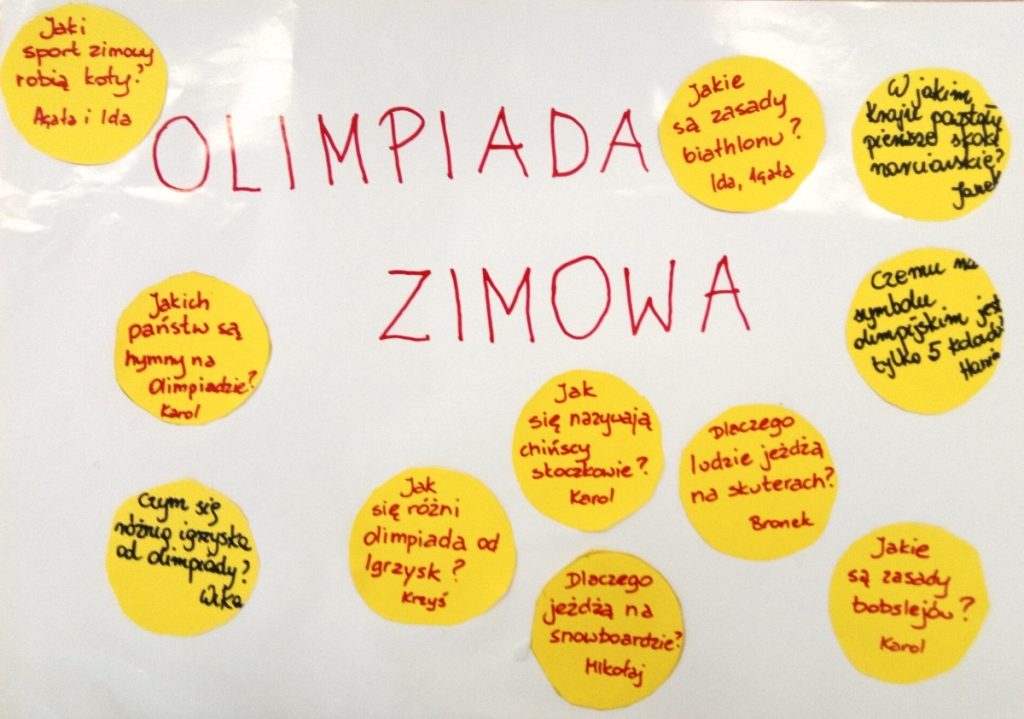 Jaki
sport zimowy
robią koty?
Agata i Ida
OLIMPIADA
ZIMOWA
Jakie
są zasady
biathlonu?
Ida, Agata
W jakim
kraju powstały
pierwsze skoki
narciarskie?
Janek
Czemu na
symbolu
olimpijskim jest
tylko 5 kolorów?
Hania
Jakich
państw są
hymny na
Olimpiadzie?
Karol
Jak
się nazywają
chińscy
skoczkowie?
Karol
Dlaczego
ludzie jeżdżą
na skuterach?
Bronek
Czym się
różnią igrzyska
od olimpiady?
Wika
Jak
się różni
olimpiada od
Igrzysk?
Krzyś
Dlaczego
jeżdżą na
snowboardzie?
Mikołaj
Jakie
są zasady
bobslejów?
Karol